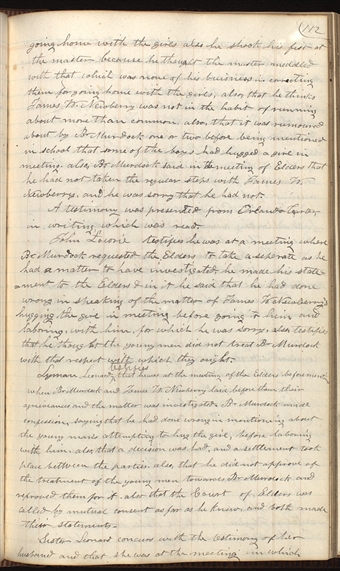 112
going home with the girls. Also he shook his fist at
the master because he thought the master meddled
with that which was none of his business in correcting
them for going home with the girls, also, that he thinks
James W. Newberry was not in the habit of running
about more than common. also, that it was rumoured
about by Br Murdock one or two before being mentioned
in school that some of the boys had hugged a girl in
meeting. also, Br Murdock said in the meeting of Elders that
he had not taken the regular steps with James W.
Newberry, and he was sorry that he had not.
A testimony was presented from Orlando
in writing which was read.
John testifies he was at a meeting where
Br Murdock requested the Elders to take a seperate as he
had a matter to have investigated, he made his state-
ment to the Elders & in it he said that he had done
wrong in speaking of the matter of James Newberry
hugging the girl in meeting before going to him and
laboring with him, for which he was sorry, also testifies
that he thought the young men did not treat Br Murdock
with that respect with which they ought.
Lyman Leonard testifies that he was at the meeting of the Elders before mention
when Br Murdock and James W. Newberry laid before them their
grievances and the matter was investigated. Br Murdock made
confession, saying that he had done wrong in mentioning about
the young man's attempting to hug the girl, before laboring
with him. also that a decision was had, and a settlement took
place between the parties. also, that he did not approve of
the treatment of the young men towards Br Murdock and
reproved them for it. also that the Court of Elders was
called by mutual consent as far as he knew, and both made
their statements.
Sister Leonard concurs with the testimony of her
husband and that she was at the meeting in which